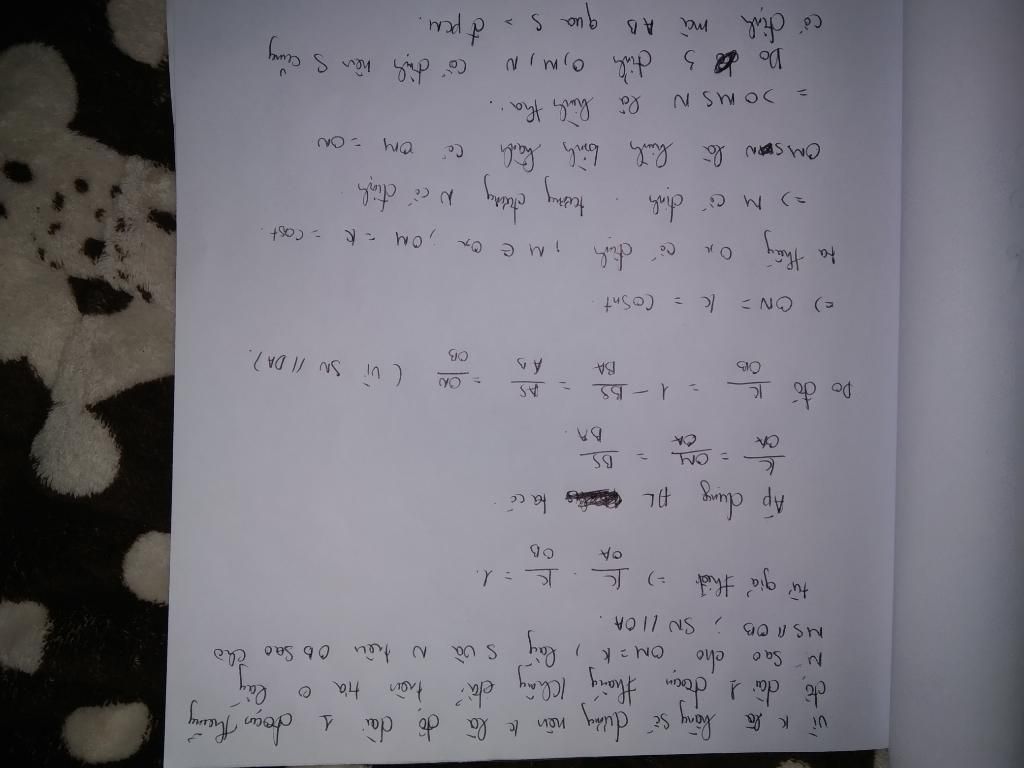 Vì k là hằng số dương nên k là độ dài 1 đoạn thẳng
độ dài 1 đoạn thẳng trên tia O lấy
N sao cho OM = k, lấy S và N trên OB sao cho
MS // OB ; SN // OA.
từ giả thiết => K/OA . K/OB = 1.
Áp dụng ĐL ta có
K/OA = OM/OA = BS/BA.
Do đó K/OB = 1 - BS/BA = AS/AB = ON/OB ( Vì SN // OA)
=> ON = k = cosnt.
ta thấy Ox cố định, M ∈ Ox ; OM = k = cost.
=> M cố định. tương đương N cố định.
OMSN là hình bình hành có OM = ON
=> OMSN là hình thoi.
Do 3 đỉnh O, M, N cố định nên S cũng
cố định mà AB qua S => đpcm